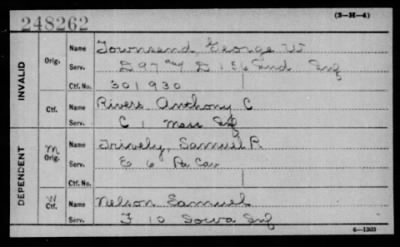 248262
(3-H-4)
INVALID
Orig.
Name Townsend, George W
Serv. D 97 and D 156 Ind Inf
Ctf. No. 301930
Ctf.
Name Rivers Anthony C
Serv. C 1 Mass Inf
DEPENDENT
M Orig.
Name Trively, Samuel P.
Serv. E 6 Pa Cav
Ctf. No.
W Ctf.
Name Nelson Samuel
Serv. F 10 Iowa Inf